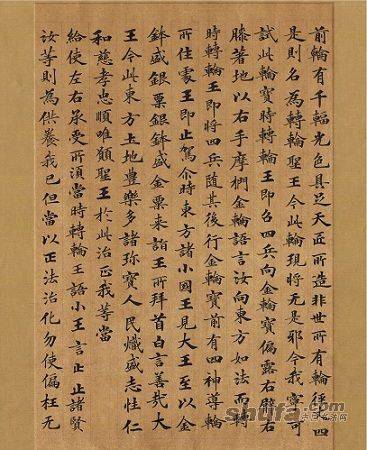 前輪有千輻光色具足天匠所造非世所有輪徑四
是則名為轉輪聖王今此輪現將无是邪今我寧可
試此輪寶時轉輪王即召四兵向金輪寶偏露右臂右
膝著地以右手摩捫金輪語言汝向東方如法而轉
時轉輪王即將四兵隨其後行金輪寶前有四神導輪
所住處王即止駕尒時東方諸小國王見大王至以金
鉢盛銀粟銀鉢盛金粟來詣王所拜首白言善哉大
王今此東方土地豐樂多諸珍寶人民熾盛志性仁
和慈孝忠順唯願聖王於此治正我等當
給使左右承受所須當時轉輪王語小王言止止諸賢
汝等則為供養我已但當以正法治化勿使偏枉无
shufa.com